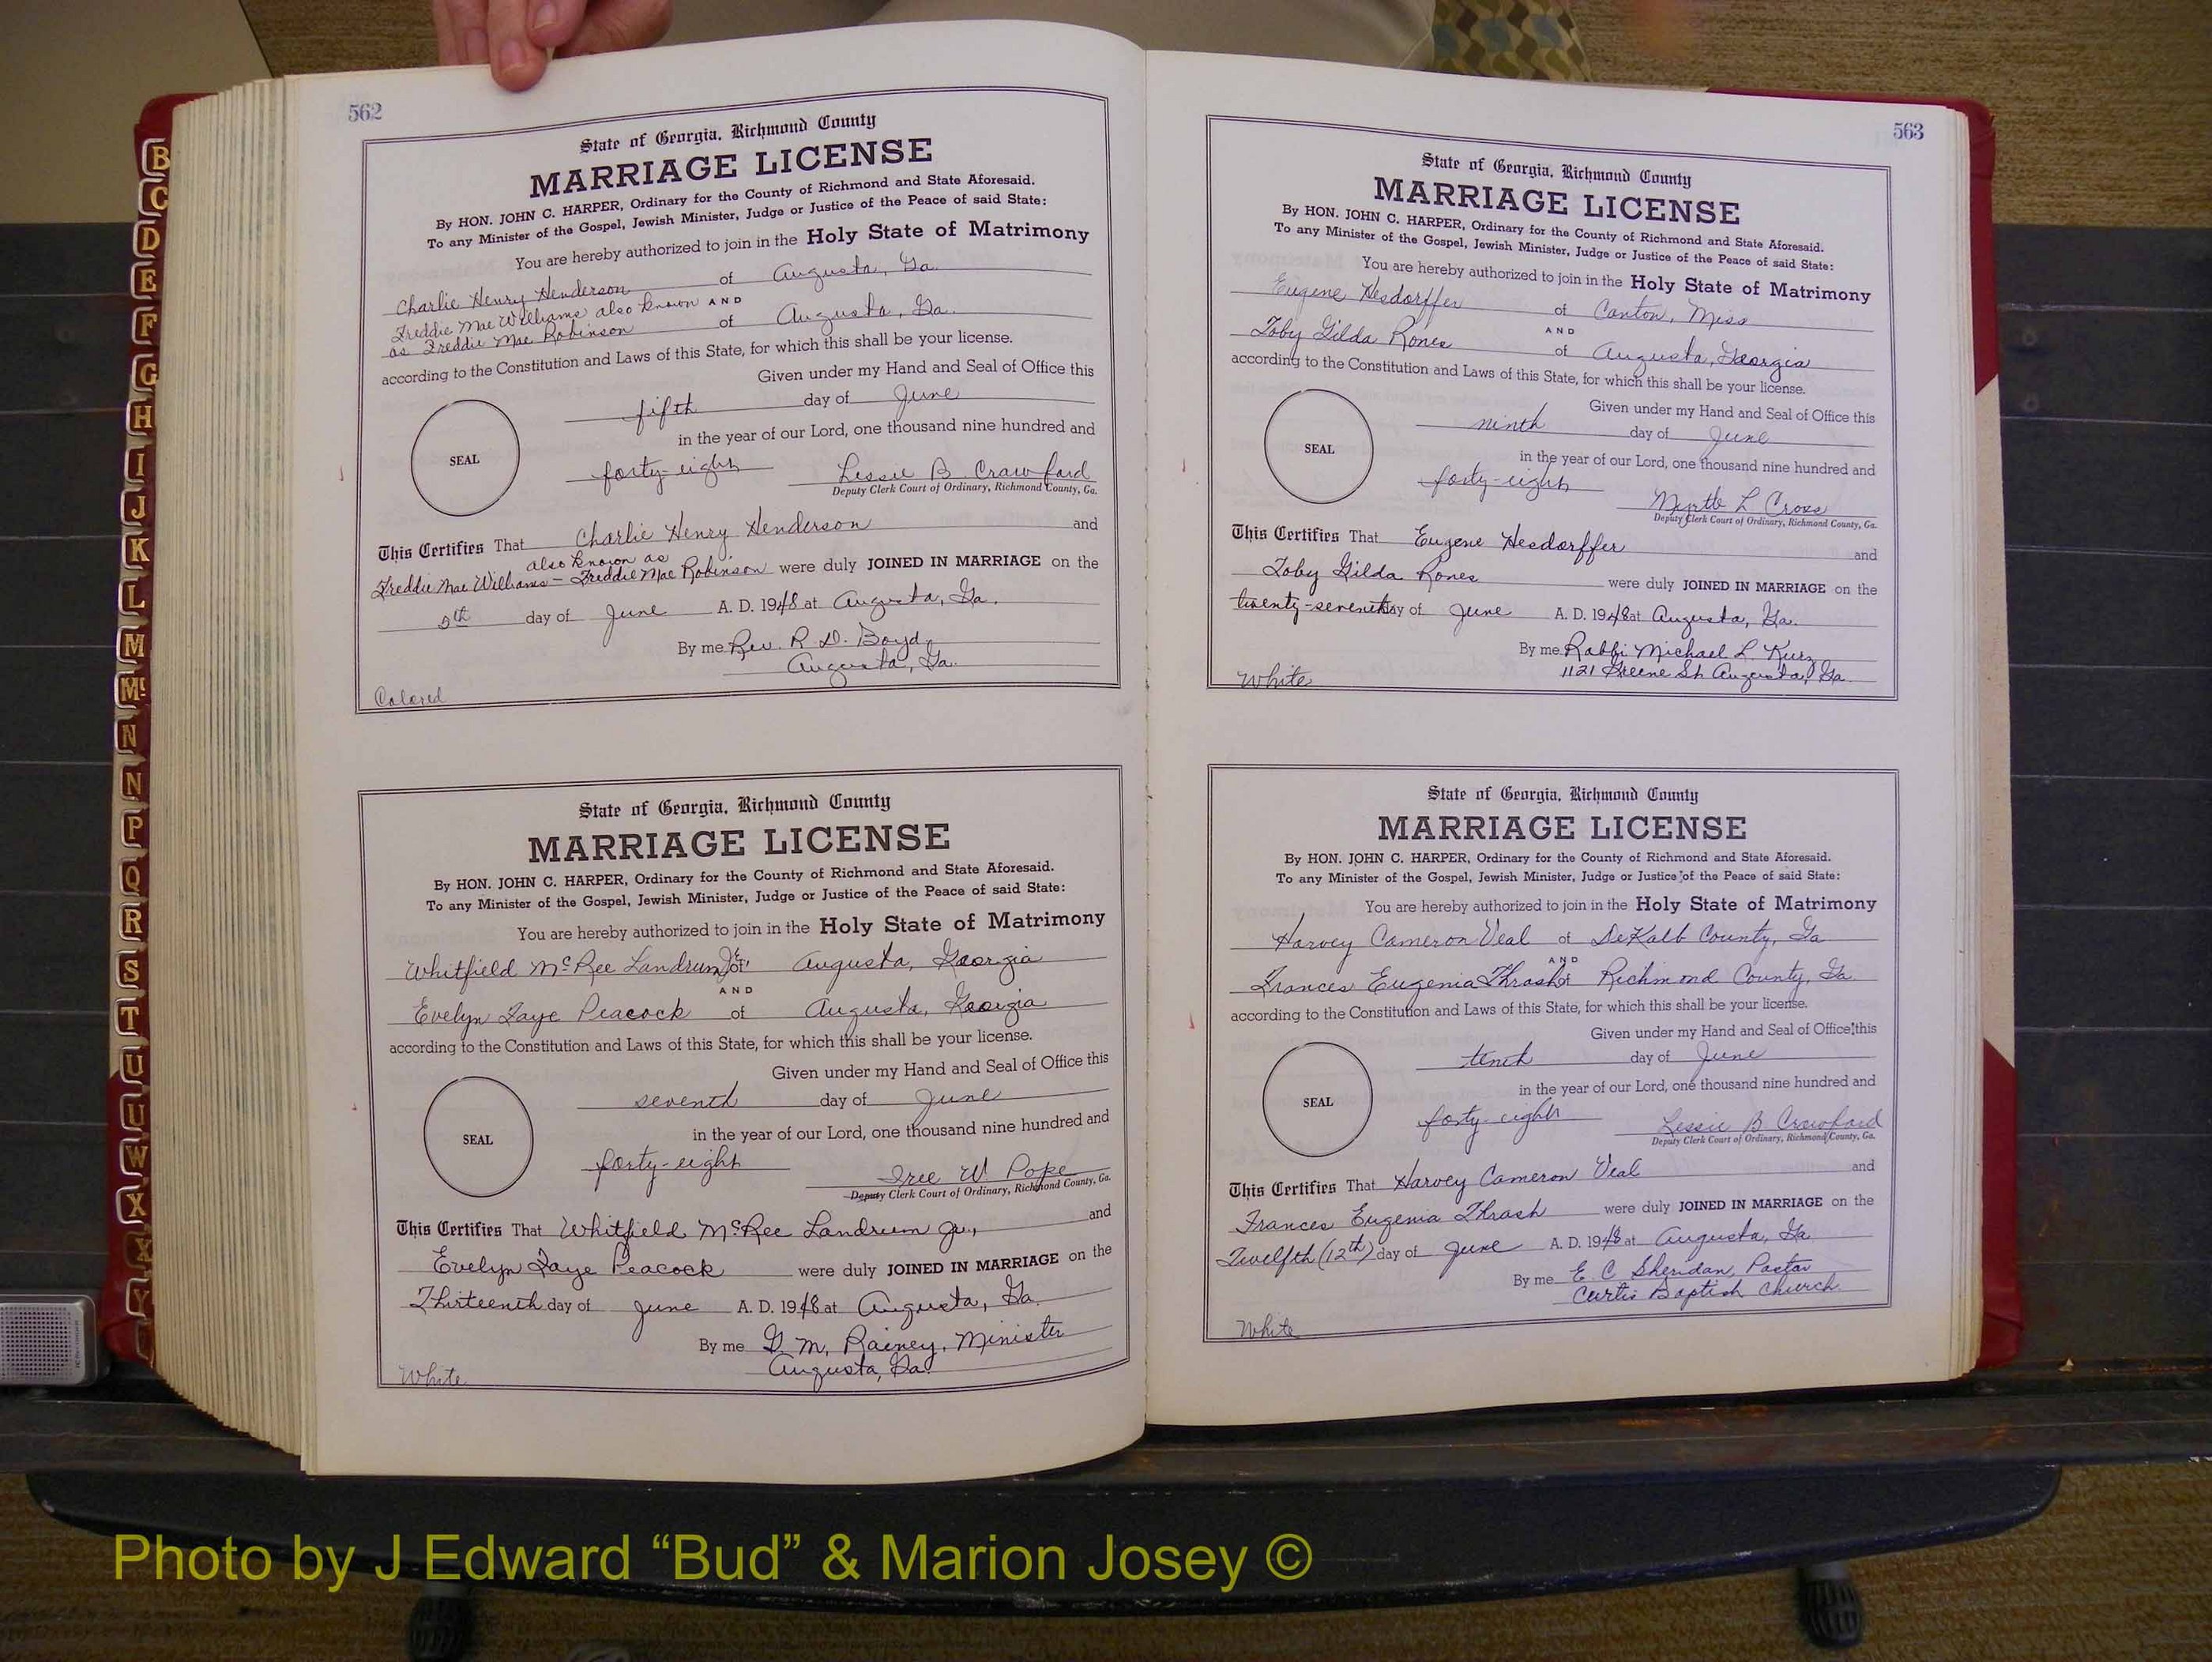 562
State of Georgia, Richmond County
MARRIAGE LICENSE
By HON. JOHN C. HARPER, Ordinary for the County of Richmond and State Aforesaid.
To any Minister of the Gospel, Jewish Minister, Judge or Justice of the Peace of said State:
You are hereby authorized to join in the Holy State of Matrimony
Charlie Henry Henderson of Augusta, Ga.
AND
Freddie Mae Williams also known
as Freddie Mae Robinson of Augusta, Ga.
according to the Constitution and Laws of this State, for which this shall be your license.
Given under my Hand and Seal of Office this
fifth day of June
in the year of our Lord, one thousand nine hundred and
SEAL
forty-eight Lessie B. Crawford
Deputy Clerk Court of Ordinary, Richmond County, Ga.
This Certifies That Charlie Henry Henderson and
also known as
Freddie Mae Williams - Freddie Mae Robinson were duly JOINED IN MARRIAGE on the
5th day of June A. D. 1948 at Augusta, Ga.
By me Rev. R. D. Boyd,
Augusta, Ga.
Colored
State of Georgia, Richmond County
MARRIAGE LICENSE
By HON. JOHN C. HARPER, Ordinary for the County of Richmond and State Aforesaid.
To any Minister of the Gospel, Jewish Minister, Judge or Justice of the Peace of said State:
You are hereby authorized to join in the Holy State of Matrimony
Whitfield McRee Landrum Jr. of Augusta, Georgia
AND
Evelyn Faye Peacock of Augusta, Georgia
according to the Constitution and Laws of this State, for which this shall be your license.
Given under my Hand and Seal of Office this
seventh day of June
in the year of our Lord, one thousand nine hundred and
SEAL
forty-eight Iree W. Pope
Deputy Clerk Court of Ordinary, Richmond County, Ga.
This Certifies That Whitfield McRee Landrum Jr., and
Evelyn Faye Peacock were duly JOINED IN MARRIAGE on the
Thirteenth day of June A. D. 1948 at Augusta, Ga.
By me G. M. Rainey, Minister
Augusta, Ga.
White
563
State of Georgia, Richmond County
MARRIAGE LICENSE
By HON. JOHN C. HARPER, Ordinary for the County of Richmond and State Aforesaid.
To any Minister of the Gospel, Jewish Minister, Judge or Justice of the Peace of said State:
You are hereby authorized to join in the Holy State of Matrimony
Eugene Hesdorffer of Canton, Miss
AND
Toby Gilda Rones of Augusta, Georgia
according to the Constitution and Laws of this State, for which this shall be your license.
Given under my Hand and Seal of Office this
ninth day of June
in the year of our Lord, one thousand nine hundred and
SEAL
forty-eight Myrtle L. Cross
Deputy Clerk Court of Ordinary, Richmond County, Ga.
This Certifies That Eugene Hesdorffer and
Toby Gilda Rones were duly JOINED IN MARRIAGE on the
twenty-seventh day of June A. D. 1948 at Augusta, Ga.
By me Rabbi Michael L. Kurz
1121 Greene St. Augusta, Ga.
White
State of Georgia, Richmond County
MARRIAGE LICENSE
By HON. JOHN C. HARPER, Ordinary for the County of Richmond and State Aforesaid.
To any Minister of the Gospel, Jewish Minister, Judge or Justice of the Peace of said State:
You are hereby authorized to join in the Holy State of Matrimony
Harvey Cameron Veal of DeKalb County, Ga
AND
Frances Eugenia Thrash of Richmond County, Ga
according to the Constitution and Laws of this State, for which this shall be your license.
Given under my Hand and Seal of Office this
tenth day of June
in the year of our Lord, one thousand nine hundred and
SEAL
forty-eight Lessie B Crawford
Deputy Clerk Court of Ordinary, Richmond County, Ga.
This Certifies That Harvey Cameron Veal and
Frances Eugenia Thrash were duly JOINED IN MARRIAGE on the
Twelfth (12th) day of June A. D. 1948 at Augusta, Ga
By me E. C Sheridan, Pastor
Curtis Baptist Church
White
B
C
D
E
F
G
H
I
J
K
L
M
Mc
N
N
P
Q
R
S
T
U
U
W
X
X
Y
Photo by J Edward “Bud” & Marion Josey ©